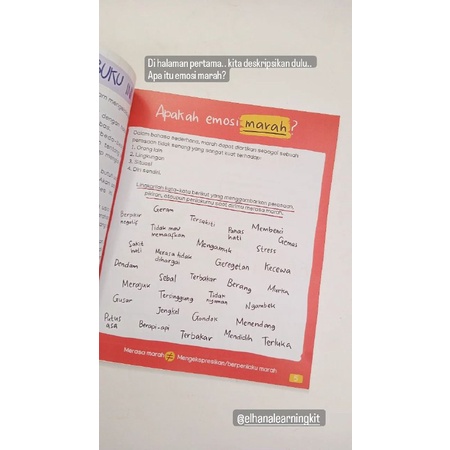 Di halaman pertama.. kita deskripsikan dulu..
Apa itu emosi marah?
BUKU
Apakah emosi marah?
Dalam bahasa sederhana, marah dapat diartikan sebagai sebuah
perasaan tidak senang yang sangat kuat terhadap:
1. Orang lain
2. Lingkungan
3. Situasi
4. Diri sendiri
Lingkarilah kata-kata berikut yang menggambarkan perasaan,
pikiran, ataupun perilakumu saat dirimu merasa marah.
Berpikir negatif
Geram
Tersakiti
Panas hati
Membenci
Gemas
Tidak mau memaafkan
Sakit hati
Mengamuk
Stress
Merasa tidak dihargai
Dendam
Geregetan
Kecewa
Merajuk
Sebal
Terbakar
Berang
Murka
Gusar
Tersinggung
Tidak nyaman
Ngambek
Putus asa
Jengkel
Gondok
Menendang
Berapi-api
Terbakar
Mendidih
Terluka
Merasa marah ≠ Mengekspresikan/berperilaku marah
@elhanalearningkit